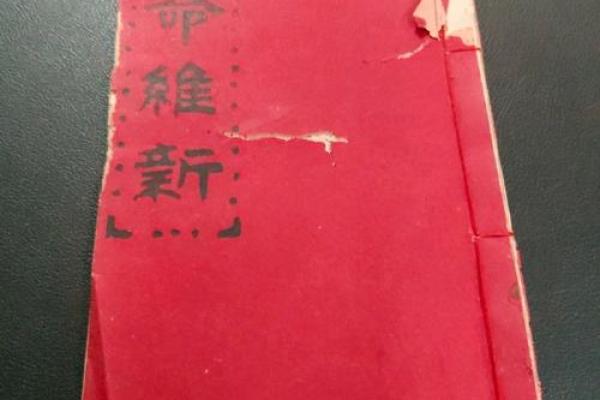 命維新